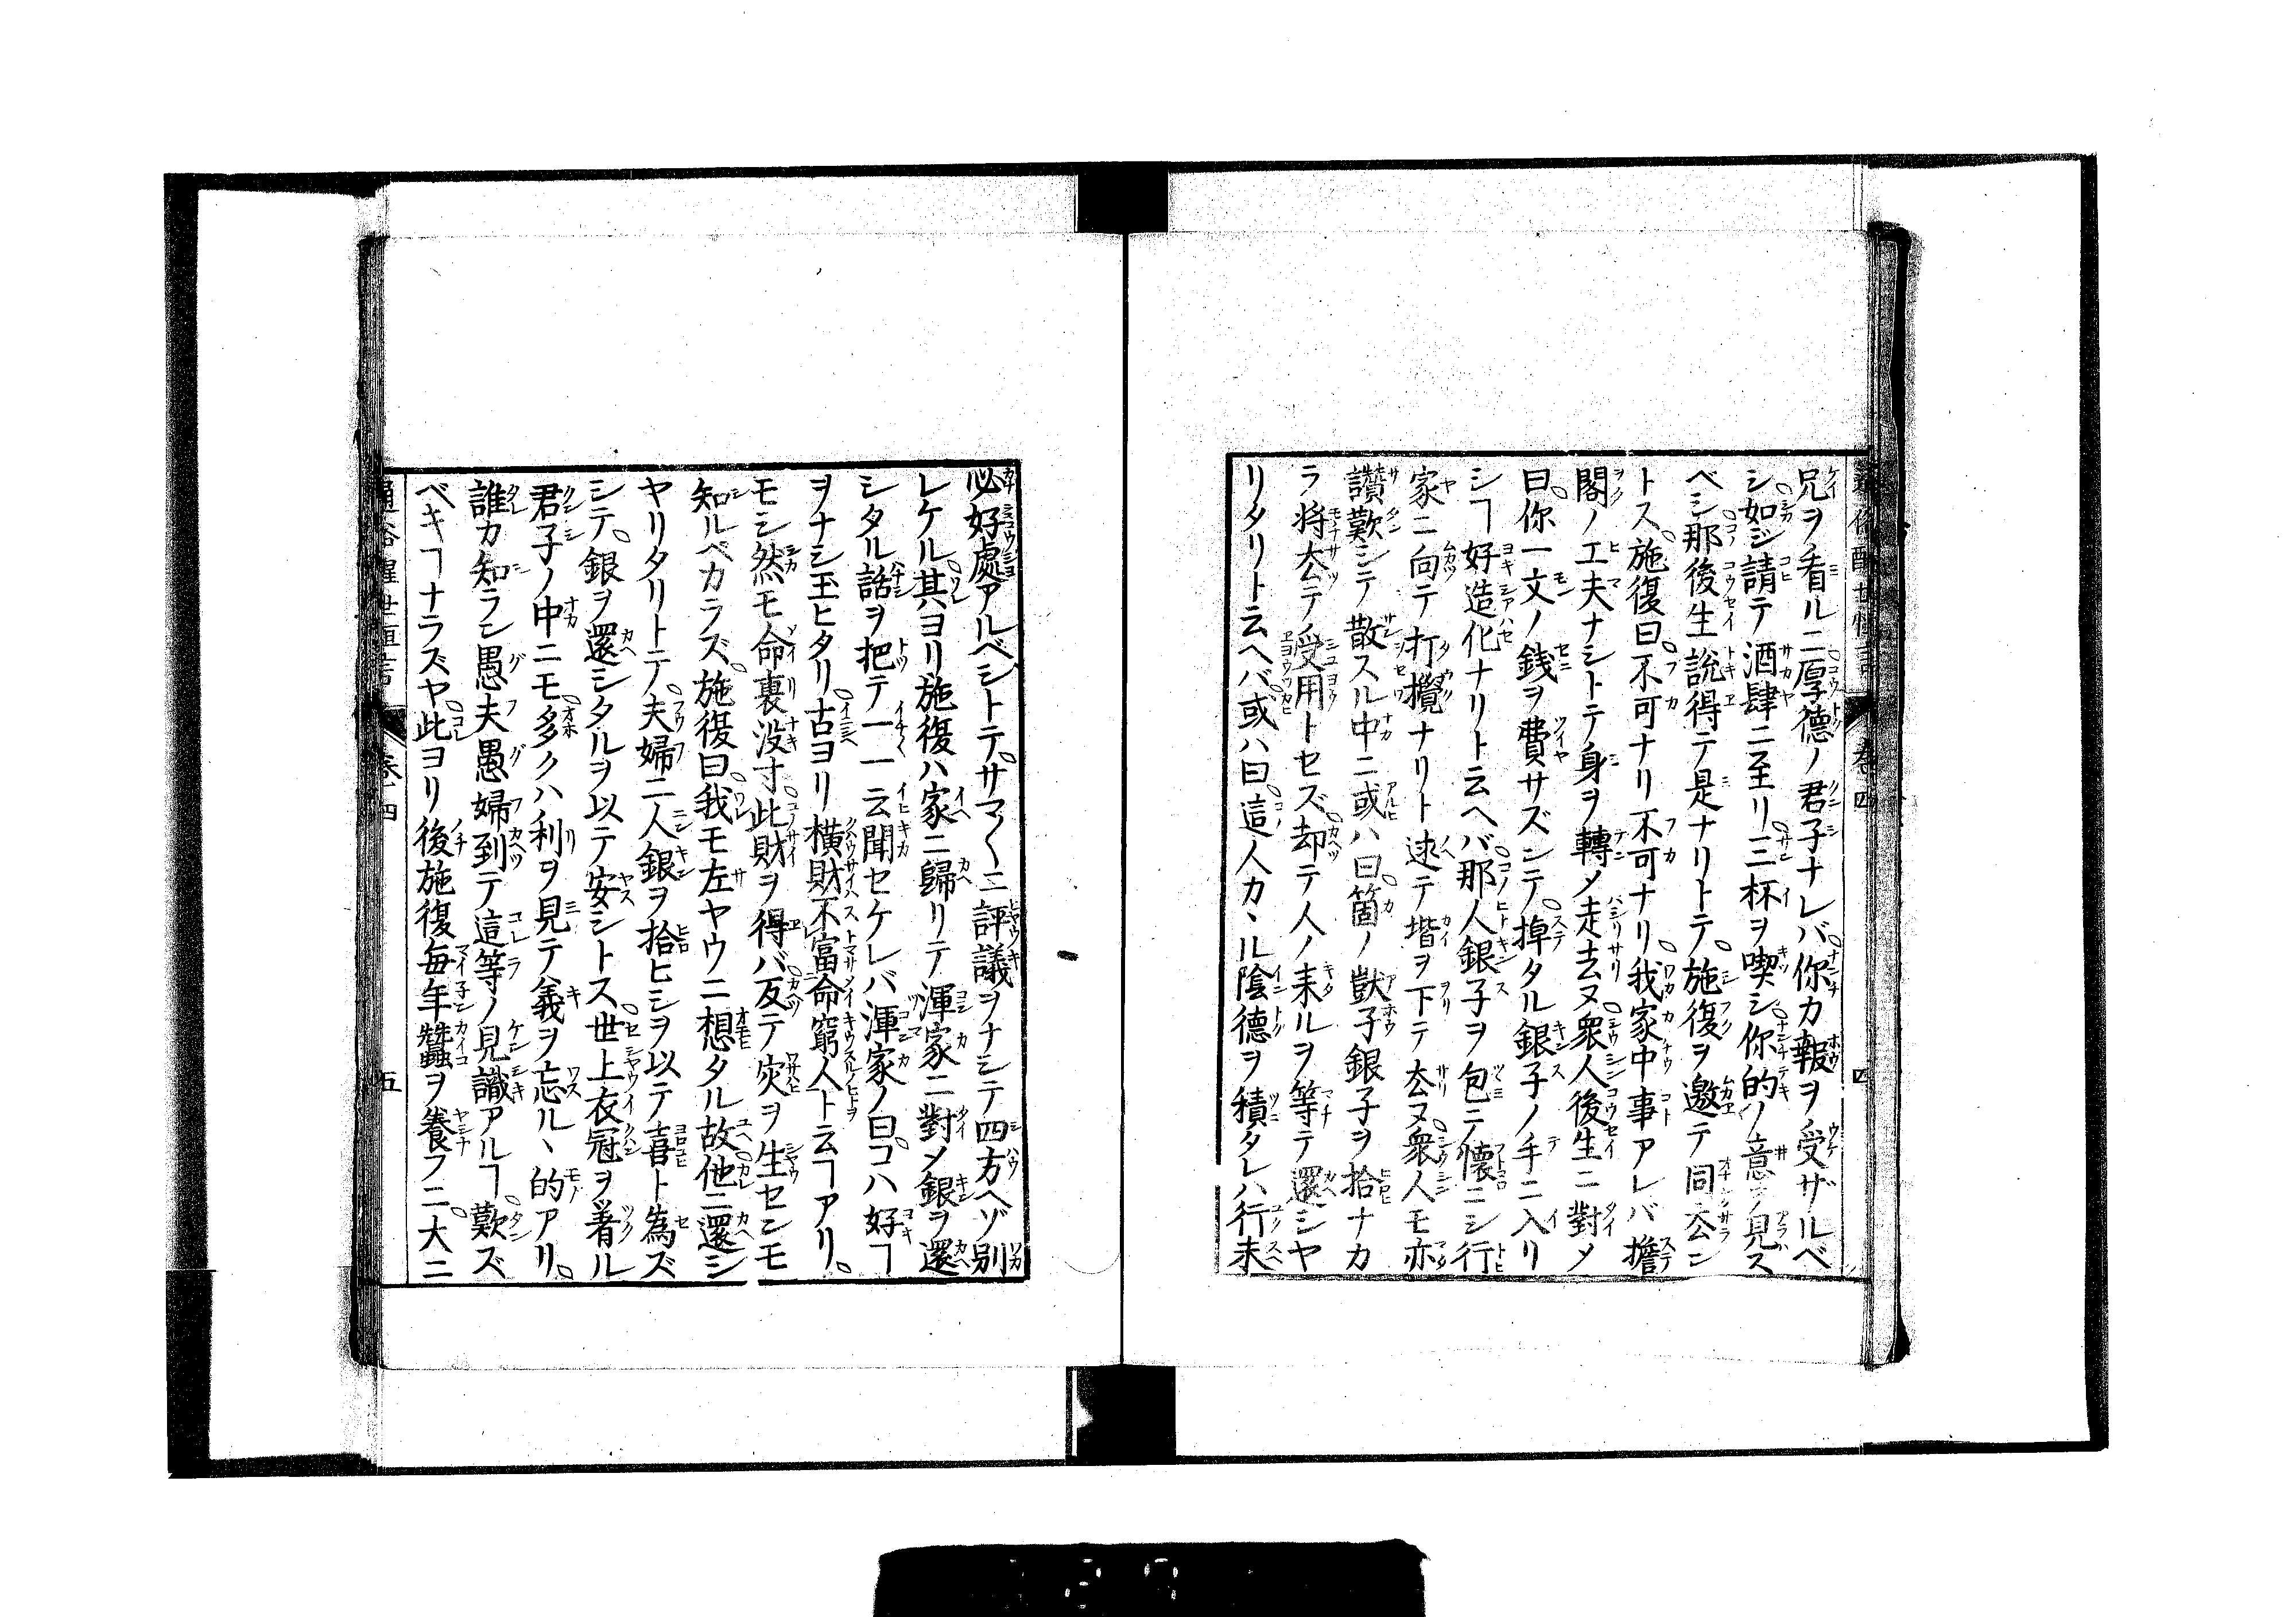 兄ヲ看ルニ厚德ノ君子ナレバ你カ報ヲ受ザルベ
シ如ジ請テ酒肆ニ至リ三杯ヲ喫シ你的ノ意ヲ見ス
ベシ那後生說得テ是ナリトテ施復ヲ邀テ同厺ン
トス施復曰不可ナリ不可ナリ我家中事アレバ擔
閣ノ工夫ナシトテ身ヲ轉メ走去ヌ衆人後生ニ對メ
曰你一文ノ銭ヲ費サズシテ掉タル銀子ノ手ニ入リ
シヿ好造化ナリト云ヘバ那人銀子ヲ包ニ懐ニシ行
家ニ向テ打攪ナリト述テ堦ヲ下テ厺ヌ衆人モ亦
讃歎シテ散スル中ニ或ハ曰箇ノ獃子銀子ヲ拾ナカ
ラ将厺テ受用トセズ却テ人ノ来ルヲ等テ還シヤ
リタリト云ヘバ或ハ曰這人カヽル陰德ヲ積タレハ行末
必好處アルベシトテサマ〱ニ評議ヲナシテ四方ヘゾ別
レケル其ヨリ施復ハ家ニ歸リテ渾家ニ對メ銀ヲ還
シタル話ヲ把テ一一云聞セケレバ渾家ノ曰コハ好ヿ
ヲナシ玉ヒタリ古ヨリ横財不富命窮人ト云ヿアリ
モシ然モ命裏没寸此財ヲ得バ反テ灾ヲ生センモ
知ルベカラズ施復曰我モ左ヤウニ想タル故他ニ還シ
ヤリタリトテ夫婦二人銀ヲ拾ヒシヲ以テ喜ト為ズ
シテ銀ヲ還シタルヲ以テ安シトス世上衣冠ヲ着ル
君子ノ中ニモ多クハ利ヲ見テ義ヲ忘ルヽ的アリ
誰カ知ラン愚夫愚婦到テ這等ノ見識アルヿ歎ズ
ベキヿナラズヤ此ヨリ後施復毎年蠶ヲ養フニ大ニ
通俗醒世恒言 巻四 五